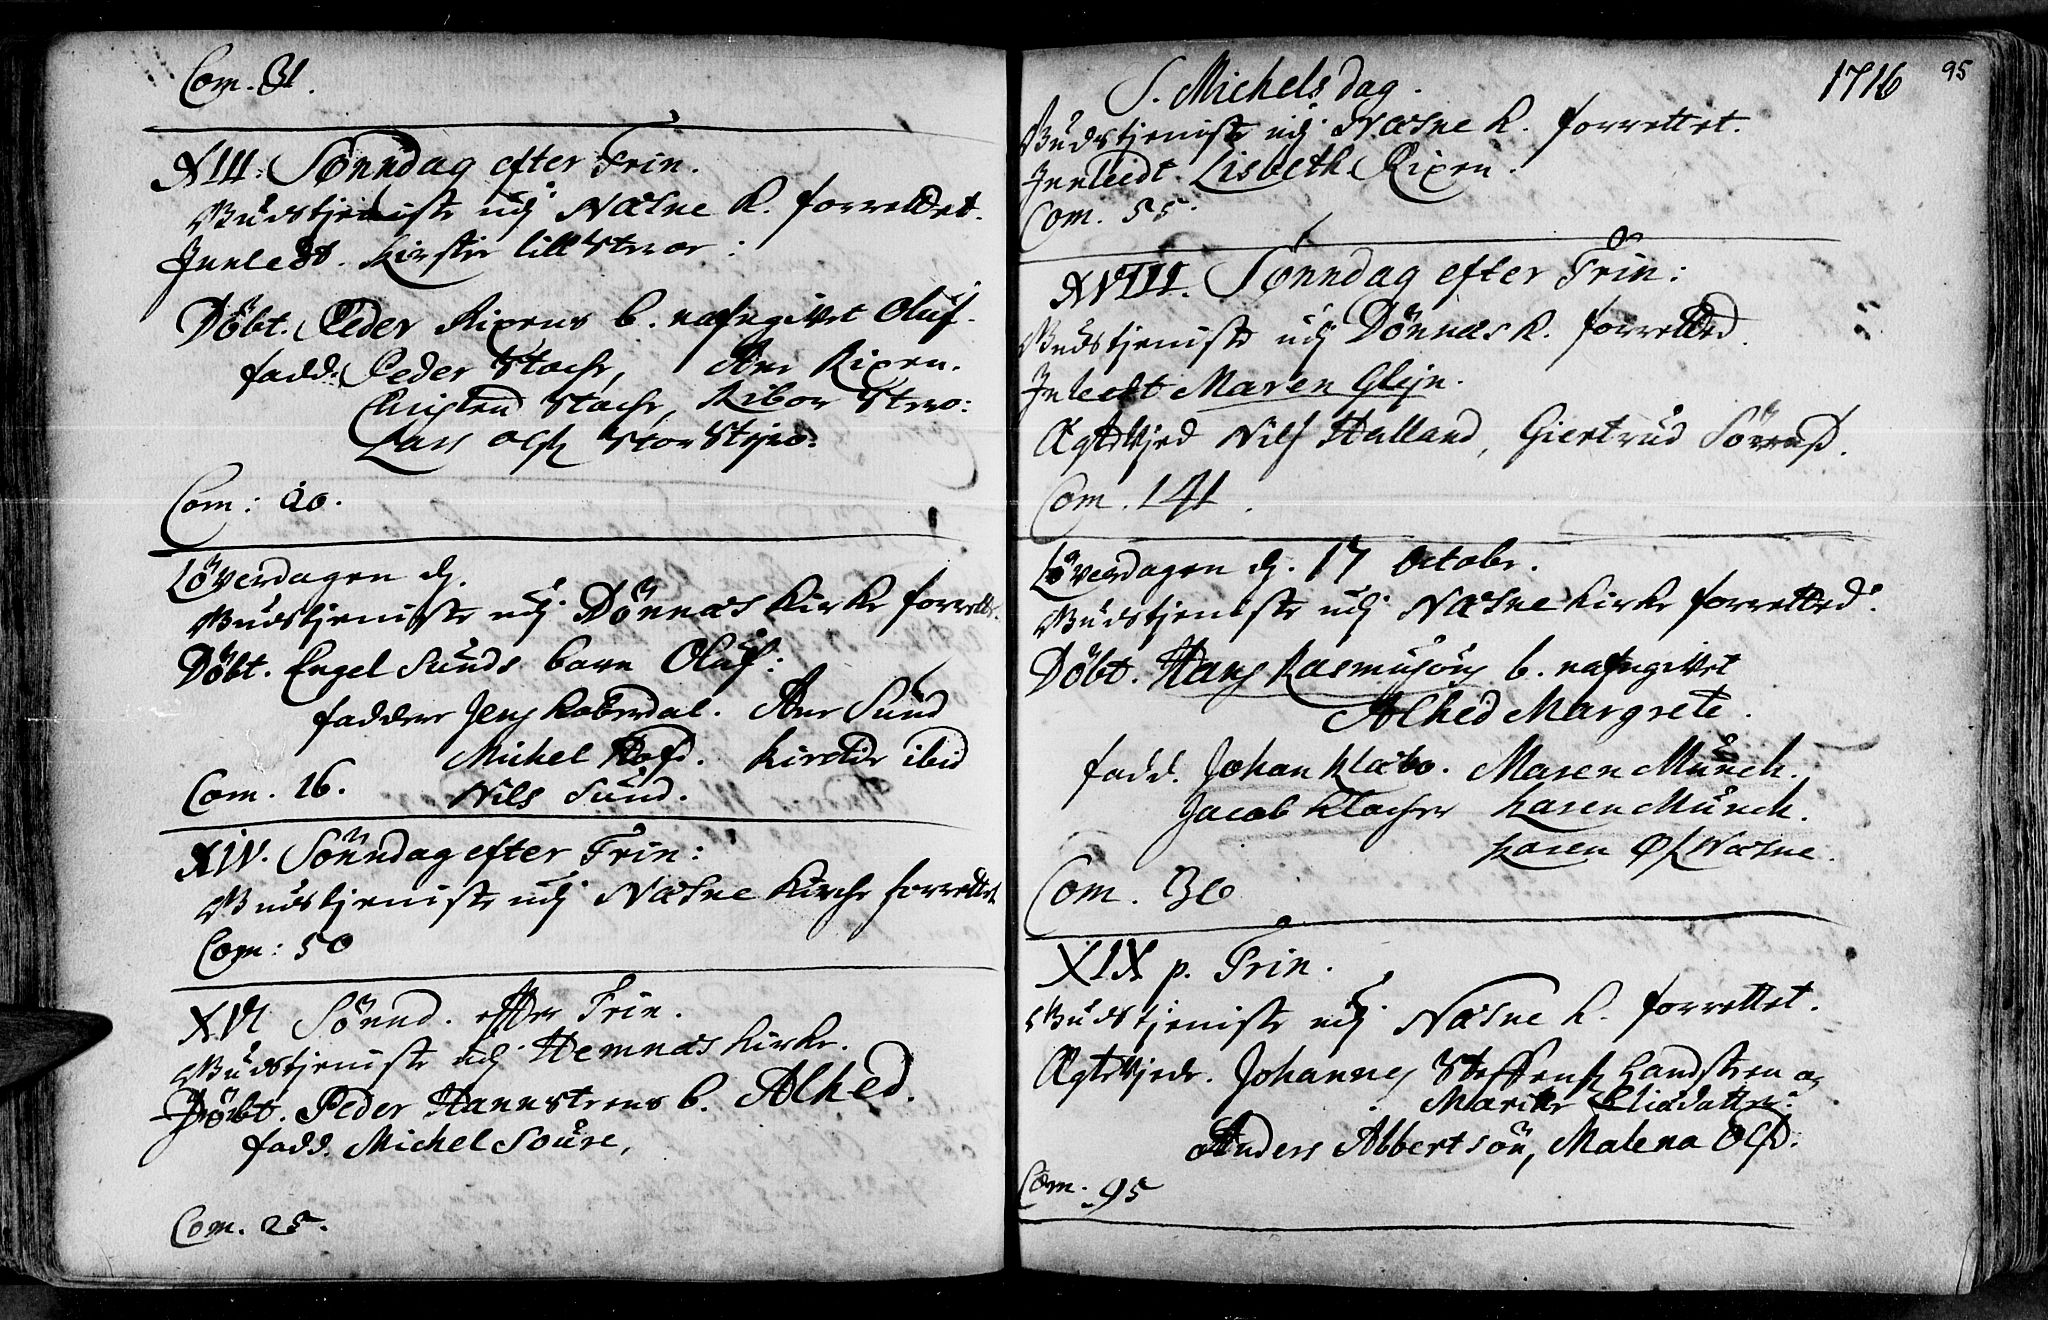 Com. 31.
XIII. Sønndag efter Trin.
Gudstieniste udj Næsne K. forrettet.
Innledt. Kirstie lill Steroe:
Döbt. Peder Rixens b. nafngivet Oluf.
fadd. Peder Stochr, Ane Rixen.
Christen Stochr, Ribor
Lars Olss
Com: 20.
Löverdagen dj.
Gudstieniste udj Dönnæs Kirke forrett.
Döbt. Engel Sunds barn Oluf:
faddere Jens Kaberdal. Ane Sund
Michel ibid
Com. 16. Nils Sund.
XIV. Sönndag efter Trin:
Gudstieniste udj Næsne Kirche forrettet
Com: 50
XVI Sönnd. effter Trin.
Gudstieniste udj Hemnæs Kirke.
Döbt. Peder Hannstrens b. Alhed.
fadd. Michel Soure,
Com. 25.
1716 95
S. Michels dag.
Gudstieniste udj Næsne K. forrettet.
Innleedt. Lisbeth Rixen.
Com. 55.
XVIII. Sønndag efter Trin:
Gudstieniste udj Dönnes K. forretted.
Inleedt Maren Glejn.
Ægtevjed Nils Halland, Giertrud Sörensd.
Com. 141.
Löverdagen dj. 17 Octobr.
Gudstieniste udj Næsne Kirke forretted.
Döbt. Hans Rasmusöns b. nafngivet
Alhed Margrete.
fadd. Johan Klæbo. Maren Münch.
Jacob Klocher Karen Münch.
Karen Næsne.
Com. 36
XIX p. Trin.
Gudstieniste udj Næsne K. forrettet.
Ægtevjede. Johannes Steffens Landstren og
Marite Eliædatter.
Anders Abbertsön, Malena Olsd.
Com. 95